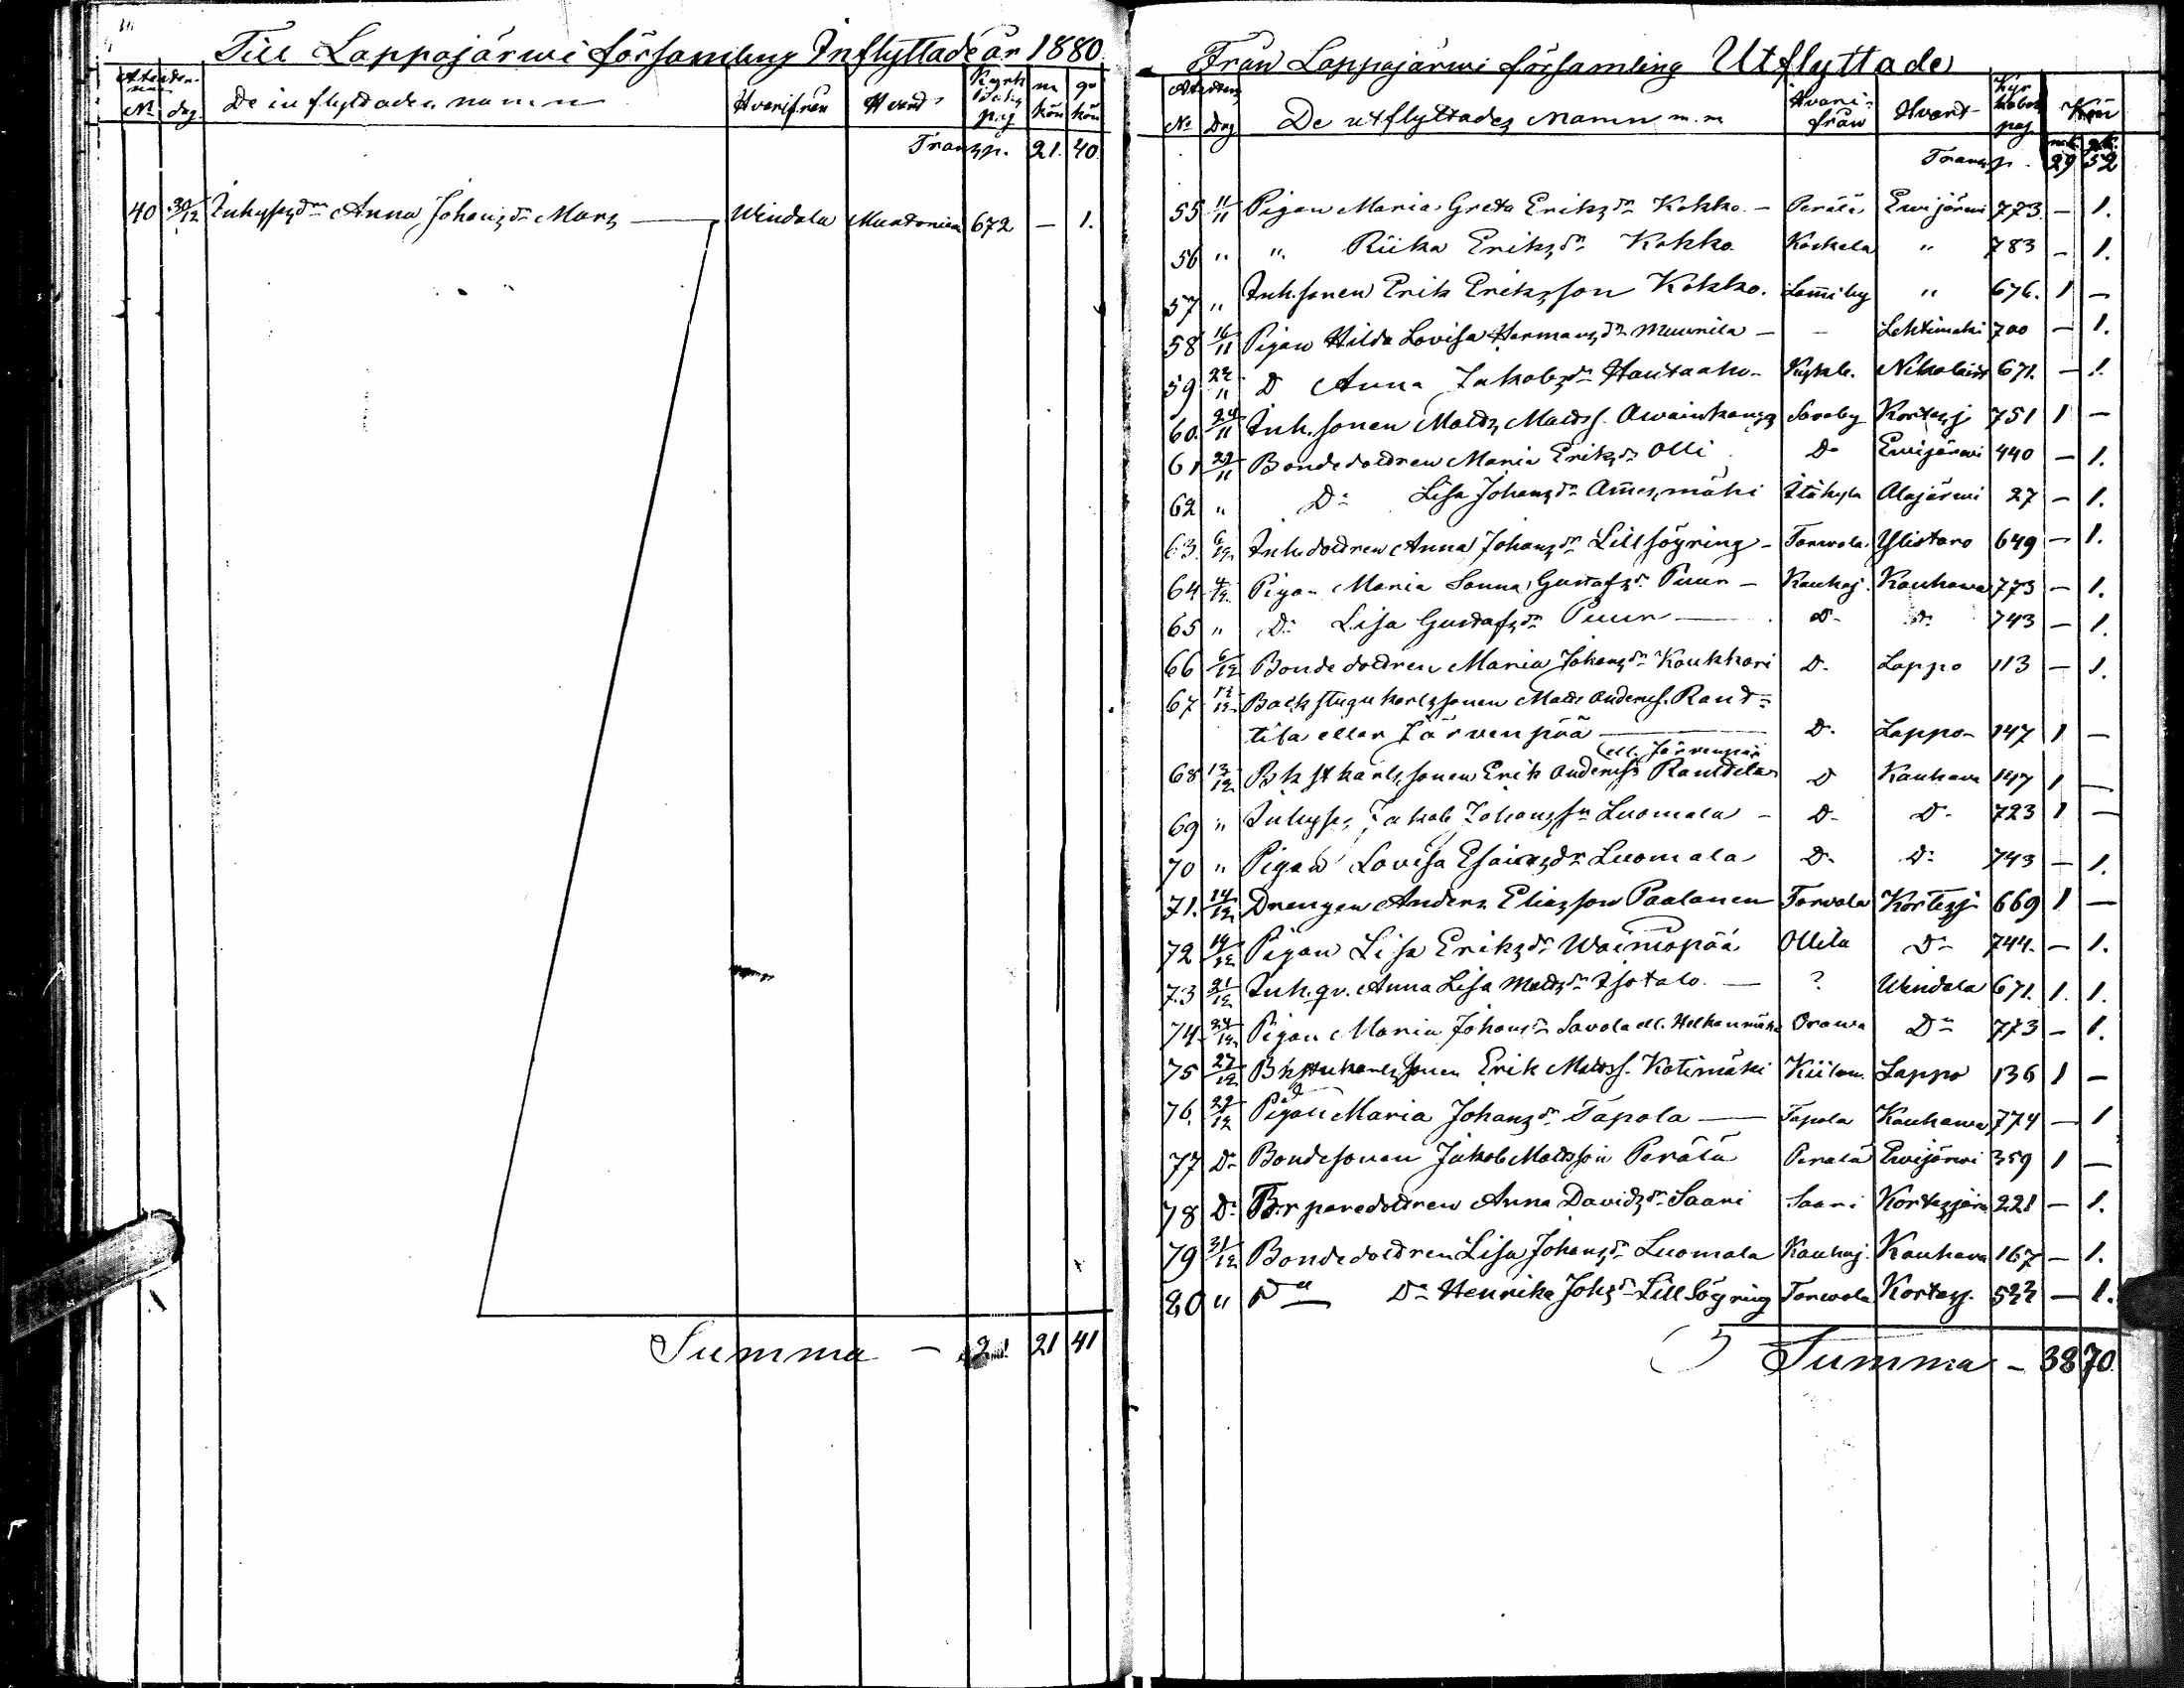 Till Lappajärwi församling Inflyttade år 1880.
No dag De inflyttades namn Hvarifrån Hvart Kyrk Boks pag m kön qv kön
Transp. 21. 40.
40 30/12 Inhysesdrn Anna Johansdr Mars — Windala 672 — 1.
Summa — 21 41
Från Lappajärwi församling Utflyttade
No Dag De utflyttades namn m.m Hvari-från Hvart Kyr kobok pag Kön
Transp. 29 52
55 11/11 Pigan Maria Greta Eriksdr Kokko. — Perälä Ewijärwi 773. — 1.
56 " " Riika Eriksdr Kokko Koskela " 783 — 1.
57 " Inh.sonen Erik Eriksson Kokko. " 676. 1 —
58 16/11 Pigan Hilda Lovisa Hermansdr — — Lehtimäki 700 — 1.
59 22/11 D Anna Jakobsdr Hautaaho — Nikolaist 671. — 1.
60. 24/11 Inh.sonen Matts Mattss. Savoby Kortesj 751 1 —
61 29/11 Bondedottren Maria Eriksdr Olli Do Ewijärwi 440 — 1.
62 " Do Lisa Johansdr Itäkylä Alajärwi 27 — 1.
63. Inh.dottren Anna Johansdr Lillsöyring — Torwola. Ylistaro 649 — 1.
64 4/12 Pigan Maria Sanna Gustafsdr Puur — Kauhaj. Kauhawa 773 — 1.
65 " Do Lisa Gustafsdr Puur — do do 743 — 1.
66 6/12 Bondedottren Maria Johansdr Koukkari Do Lappo 113 — 1.
67 12/12 Backstugukarlssonen Matts Anderss. Rant=
tila eller Järvenpää — Do Lappo 147 1 —
ell. Järvenpää
68 13/12 Bkstkarlssonen Erik Anderss Rantdila D Kauhava 147 1 —
69 " Inhyss. Jakob Johansson Luomala — Do Do 723 1 —
70 " Pigan Lovisa Esaiasdr Luomala Do Do 743 — 1.
71. 14/12 Drengen Anders Eliasson Paalanen Torvola Kortesj 669 1 —
72 19/12 Pigan Lisa Eriksdr Wainiopää Ollila Do 744. — 1.
73 21/12 Inh.qv. Anna Lisa Mattsdr Isotalo. — ? Windala 671. 1. 1.
74 24/12 Pigan Maria Johansdr Savola ell. Orawa Do 773 — 1.
75 27/12 Bkstukarlssonen Erik Mattss. Kotimäki Lappo 136 1 —
76. 29/12 Pigan Maria Johansdr Tapola — Tapola Kauhawa 774 — 1
77 Do Bondesonen Jakob Mattsson Perälä Perälä Ewijärwi 359 1 —
78 Do dottren Anna Davidsdr Saari Saari Kortesjärw 221 — 1.
79 31/12 Bondedottren Lisa Johansdr Luomala Kauhaj. Kauhava 167 — 1.
80 " Do — Do Henrika Johsdr Lillsöyring Torwola Kortesj. 522 — 1.
Summa — 38 70.